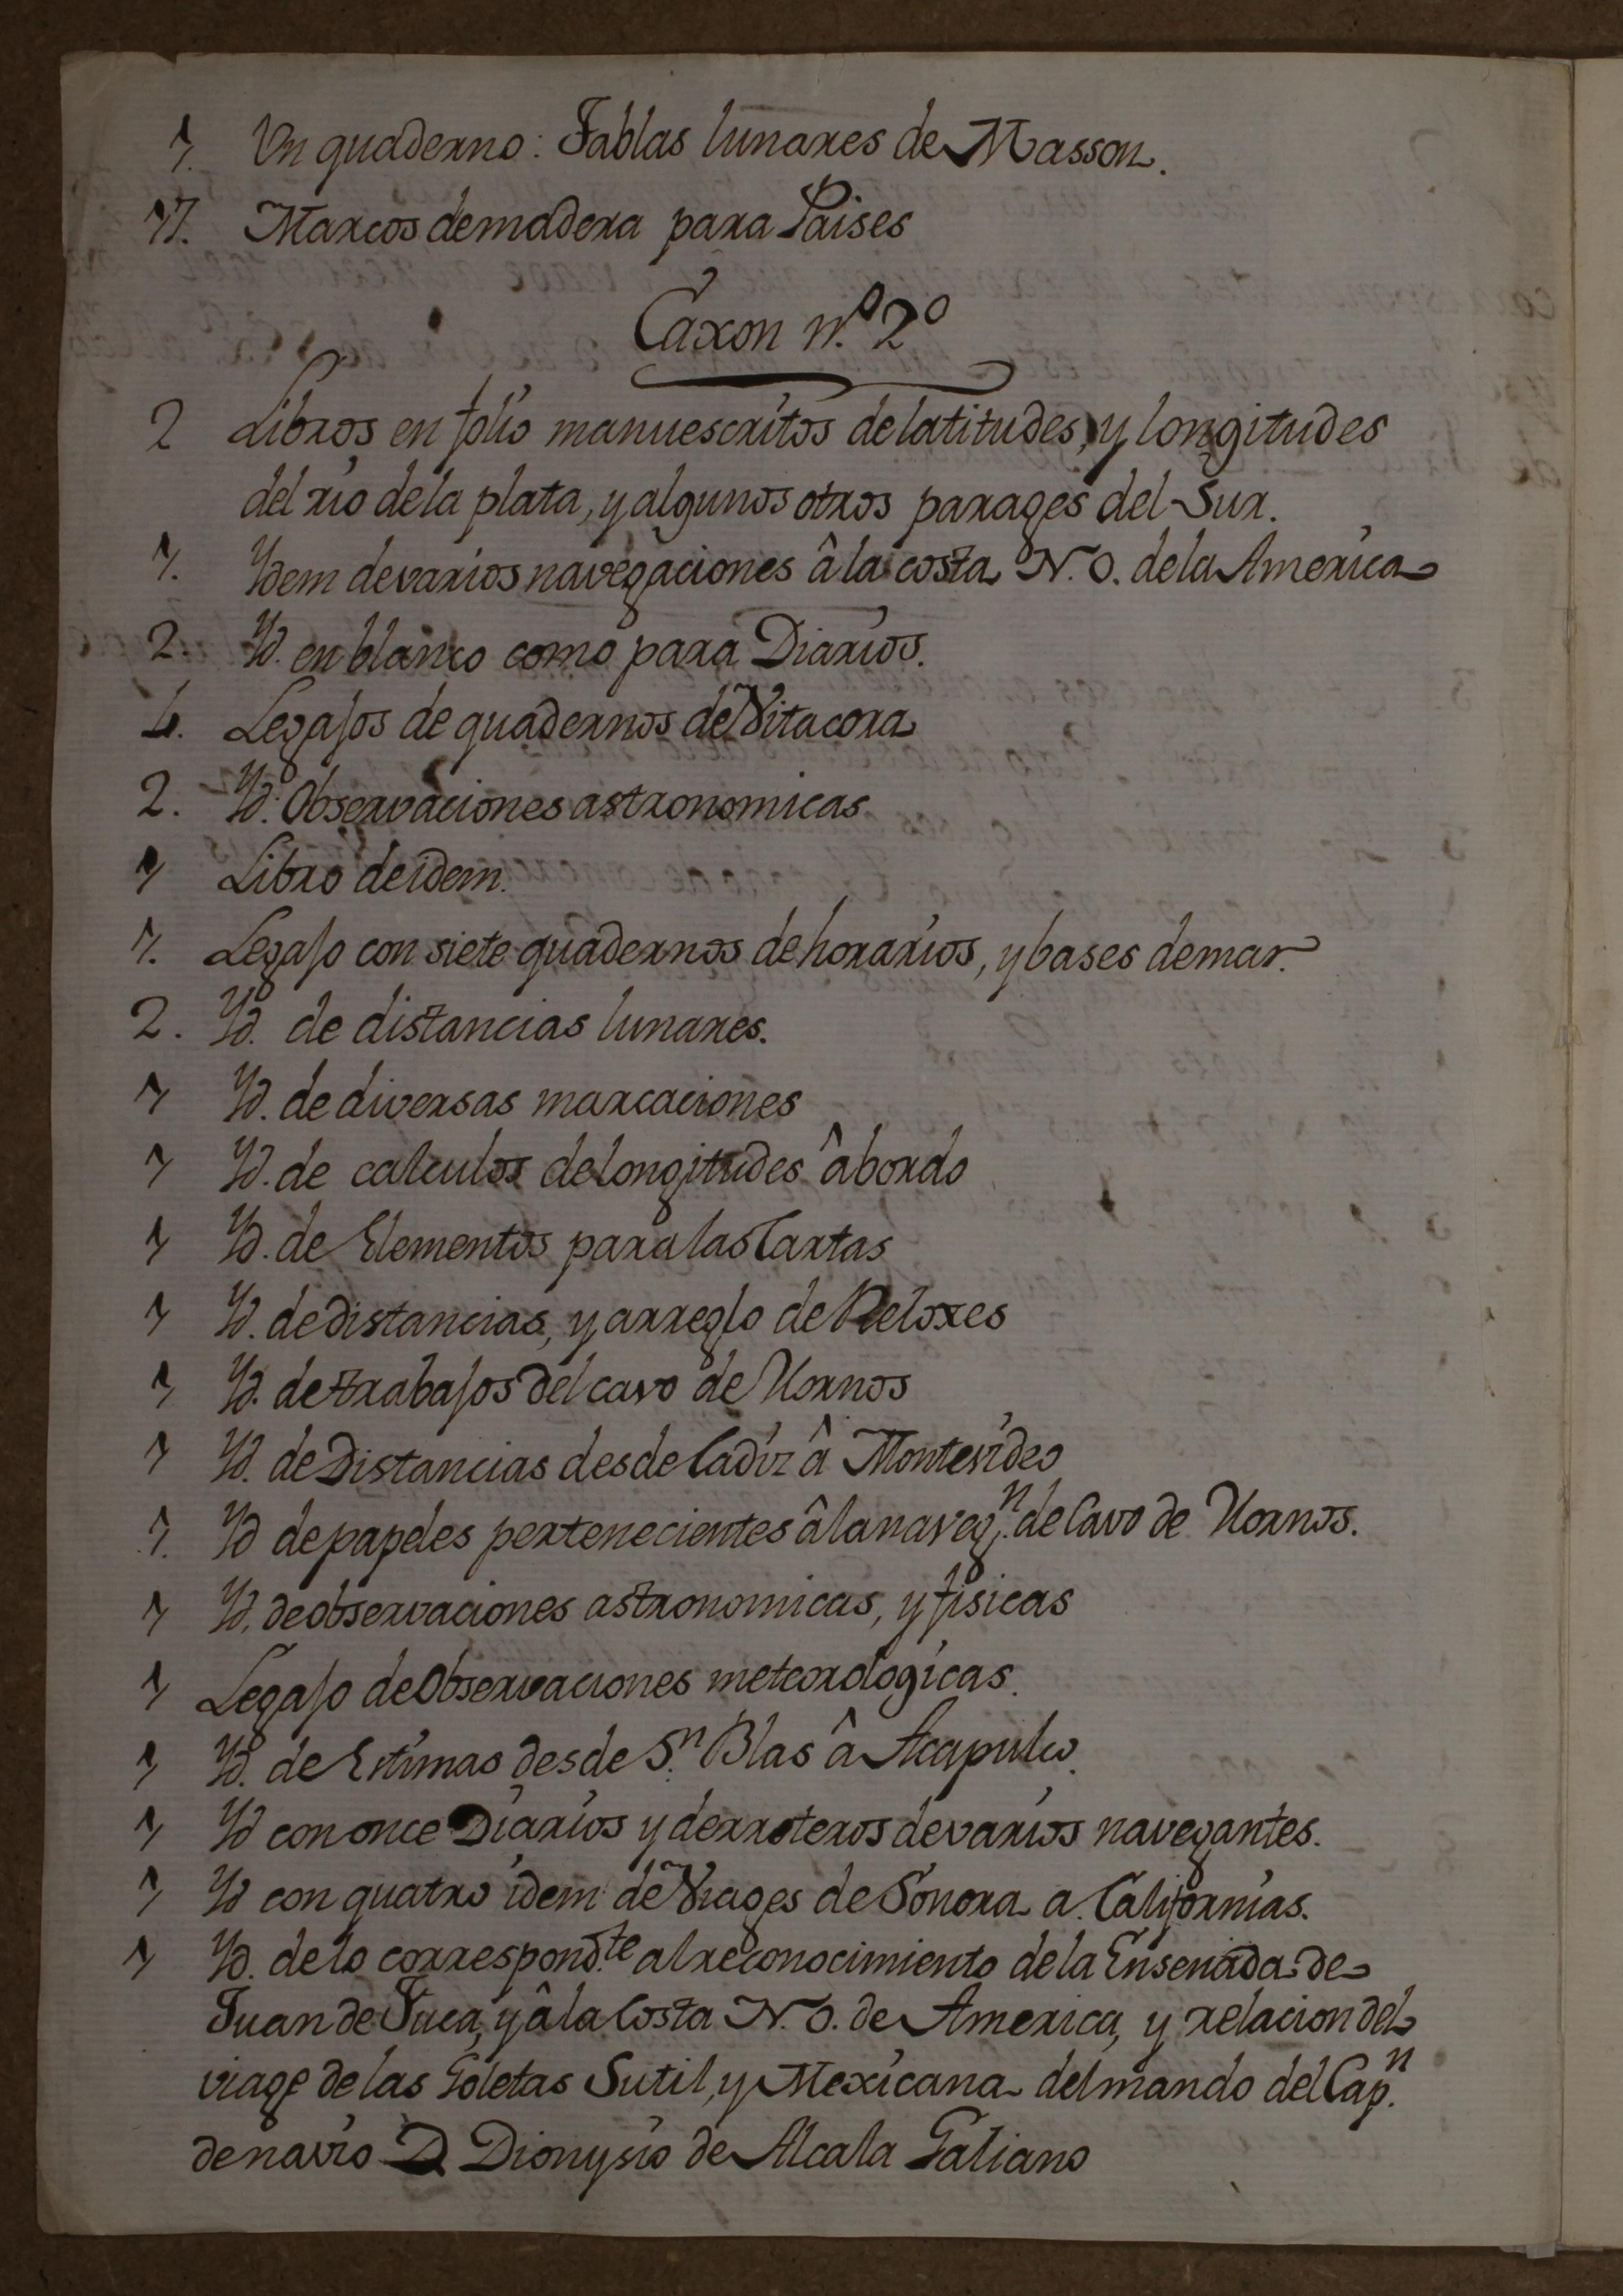 1. Un quaderno: Tablas lunares de Masson.
11. Marcos de madera para Paises
Caxon n.º 2º
2 Libros en folio manuescritos de latitudes, y longitudes
del rio de la plata, y algunos otros parages del Sur.
1. Ydem de varios navegaciones â la costa N. O. de la America
2. Yd. en blanco como para Diarios.
6. Legajos de quadernos de Vitacora
2. Yd. Observaciones astronomicas
1 Libro de idem.
1. Legajo con siete quadernos de horarios, y bases de mar.
2. Yd. de distancias lunares.
1 Yd. de diversas marcaciones
1 Yd. de calculos de longitudes â bordo
1 Yd. de Elementos para las Cartas
1 Yd. de distancias, y arreglo de Reloxes
1 Yd. de trabajos del cavo de Hornos
1 Yd. de Distancias desde Cadiz â Montevideo
1. Yd de papeles pertenecientes â la naveg.n de Cavo de Hornos.
1 Yd. de observaciones astronomicas, y fisicas
1 Legajo de Observaciones meteorologicas.
1 Yd. de Estimas desde S.n Blas â Acapulco.
1 Yd con once Diarios y derroteros de varios navegantes.
1 Yd con quatro idem de Viages de Sonora a Californias.
1 Yd. de lo correspond.te al reconocimiento de la Ensenada de
Juan de Fuca, y â la Costa N. O. de America, y relacion del
viage de las Goletas Sutil, y Mexicana del mando del Cap.n
de navio D Dionysio de Alcala Galiano